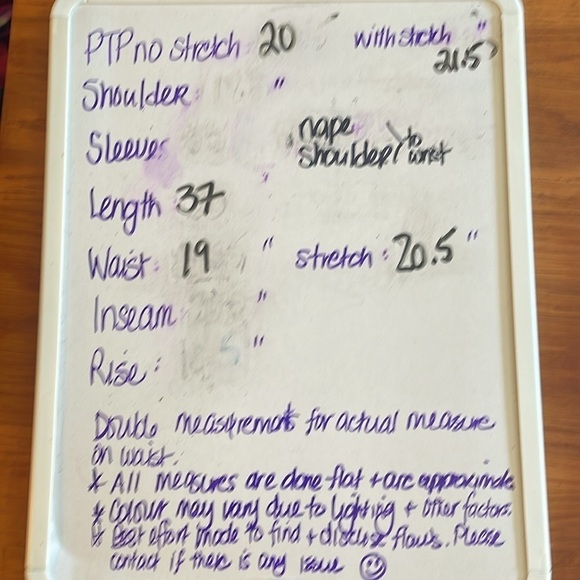 PTP no stretch 20 with stretch "
21.5
Shoulder: "
Sleeve: " nape
shoulder / to wrist
Length 37 "
Waist: 19 " stretch: 20.5 "
Inseam: "
Rise: "
Double measurement for actual measure
on waist.
* All measures are done flat + are approximate
* Colour may vary due to lighting + other factors.
* Best effort made to find + disclose flaws. Please
contact if there is any issue ☺